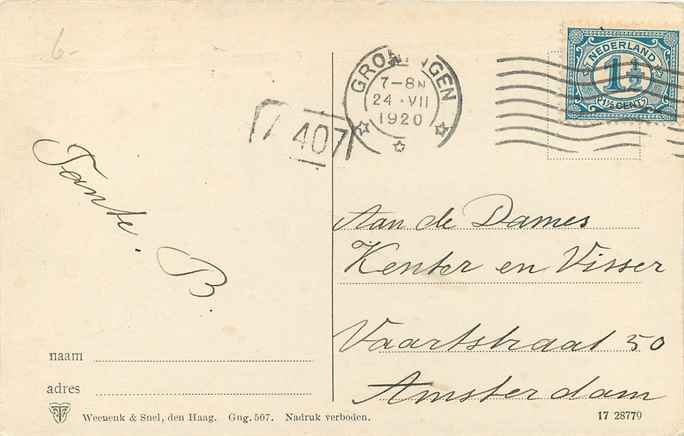 6-
GRONINGEN
7-8N
24 · VII
1920
NEDERLAND
1 1/2
1½ CENT
407
Tante. B.
Aan de Dames
Kenter en Visser
Vaartstraat 50
Amsterdam
naam
adres
Weenenk & Snel, den Haag. Gng. 507. Nadruk verboden.
17 28770